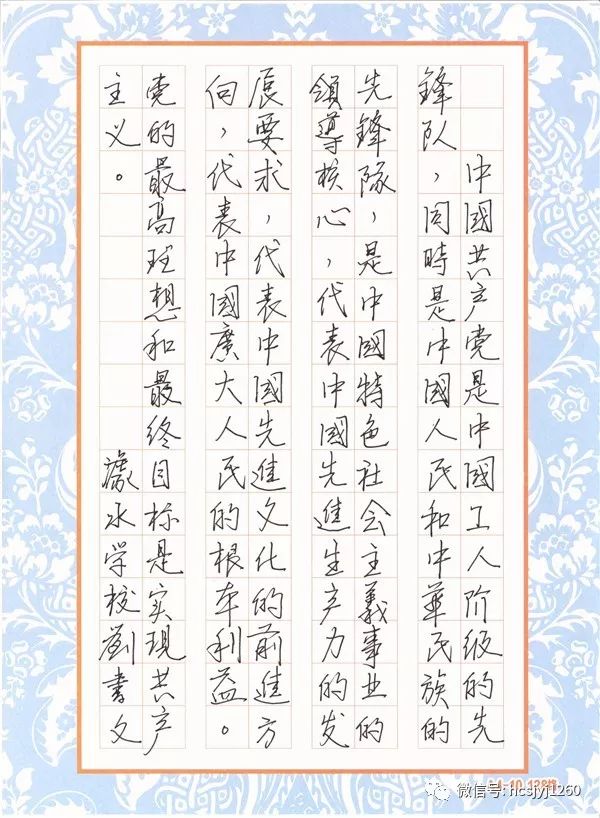 中國共产党是中國工人阶级的先
鋒队，同時是中國人民和中華民族的
先鋒隊，是中國特色社会主義事业的
領導核心，代表中國先進生产力的发
展要求，代表中國先進文化的前進方
向，代表中國廣大人民的根本利益。
党的最高理想和最终目标是实現共产
主义。
水学校劉書文
微信号: hcsjyj1260